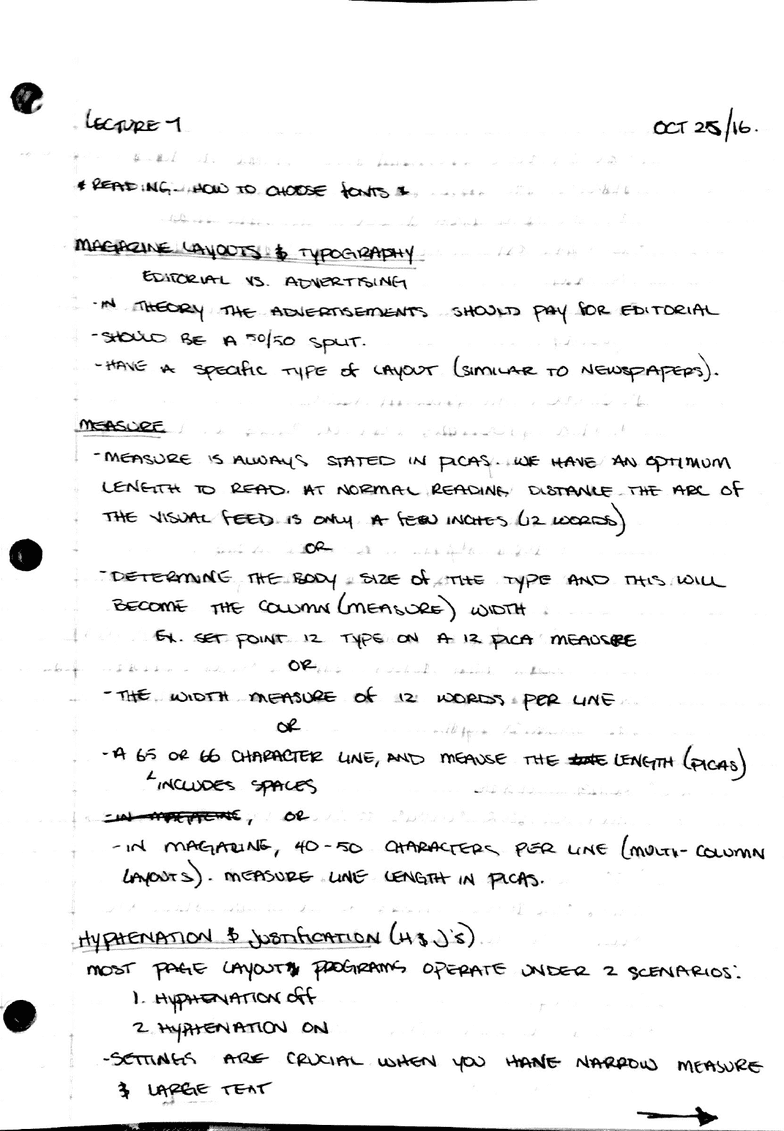 LECTURE 7
OCT 25/16.
* READING - HOW TO CHOOSE FONTS *
MAGAZINE LAYOUTS & TYPOGRAPHY
EDITORIAL VS. ADVERTISING
-IN THEORY THE ADVERTISEMENTS SHOULD PAY FOR EDITORIAL
-SHOULD BE A 50/50 SPLIT.
-HAVE A SPECIFIC TYPE OF LAYOUT (SIMILAR TO NEWSPAPERS).
MEASURE
-MEASURE IS ALWAYS STATED IN PICAS. WE HAVE AN OPTIMUM
LENGTH TO READ. AT NORMAL READING DISTANCE THE ARC OF
THE VISUAL FEED IS ONLY A FEW INCHES (12 WORDS)
OR
-DETERMINE THE BODY SIZE OF THE TYPE AND THIS WILL
BECOME THE COLUMN (MEASURE) WIDTH
EX. SET POINT 12 TYPE ON A 12 PICA MEASURE
OR
-THE WIDTH MEASURE OF 12 WORDS PER LINE
OR
-A 65 OR 66 CHARACTER LINE, AND MEAUSE THE LENGTH (PICAS)
INCLUDES SPACES
-IN MAGAZINE, OR
-IN MAGAZINE, 40-50 CHARACTERS PER LINE (MULTI-COLUMN
LAYOUTS). MEASURE LINE LENGTH IN PICAS.
HYPHENATION & JUSTIFICATION (H&J'S)
MOST PAGE LAYOUT PROGRAMS OPERATE UNDER 2 SCENARIOS:
1. HYPHENATION OFF
2 HYPHENATION ON
-SETTINGS ARE CRUCIAL WHEN YOU HAVE NARROW MEASURE
& LARGE TEXT